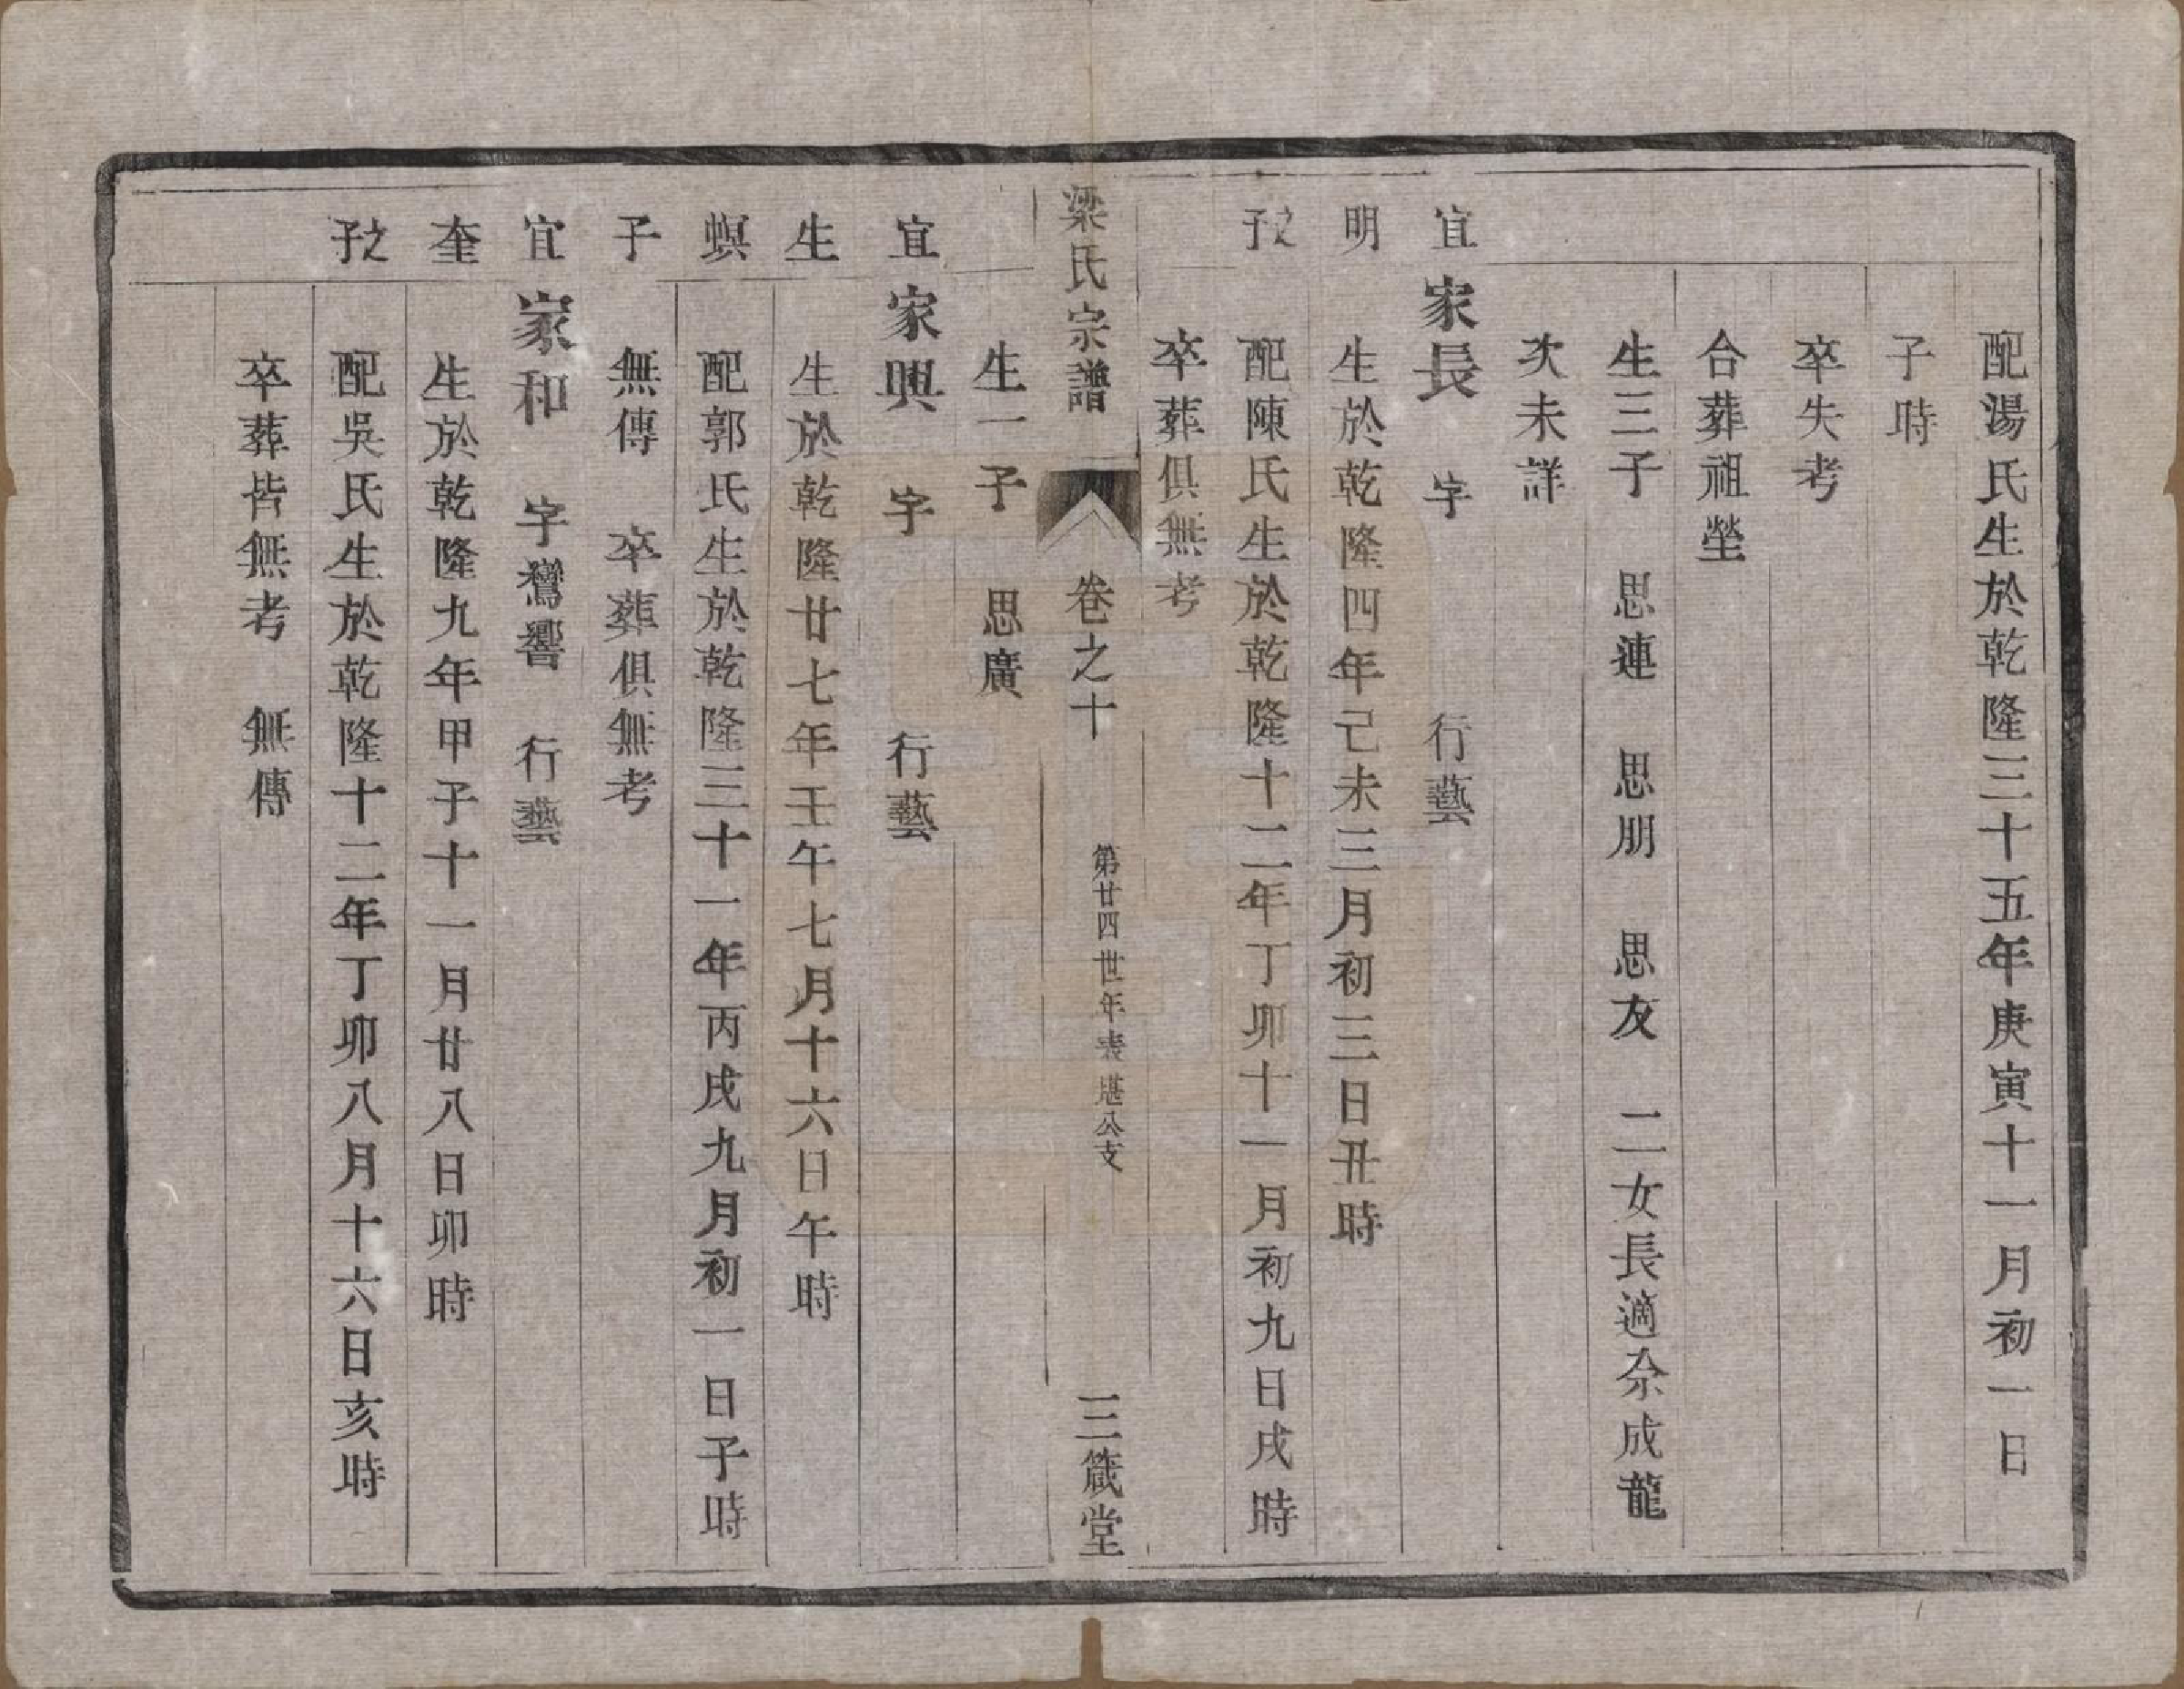 配湯氏生於乾隆三十五年庚寅十一月初一日
子時
卒失考
合葬祖塋
生三子　思連　思朋　思友　二女長適佘成龍
次未詳
宜　家長　字　行藝
明　生於乾隆四年己未三月初三日丑時
之子　配陳氏生於乾隆十二年丁卯十一月初九日戌時
卒葬俱無考
梁氏宗譜　卷之十　第廿四世年表 堪公支　三箴堂
生一子　思廣
宜　家興　字　行藝
生　生於乾隆廿七年壬午七月十六日午時
螟　配郭氏生於乾隆三十一年丙戌九月初一日子時
子　無傳　卒葬俱無考
宜　家和　字鸞響　行藝
奎　生於乾隆九年甲子十一月廿八日卯時
之子　配吳氏生於乾隆十二年丁卯八月十六日亥時
卒葬皆無考　無傳